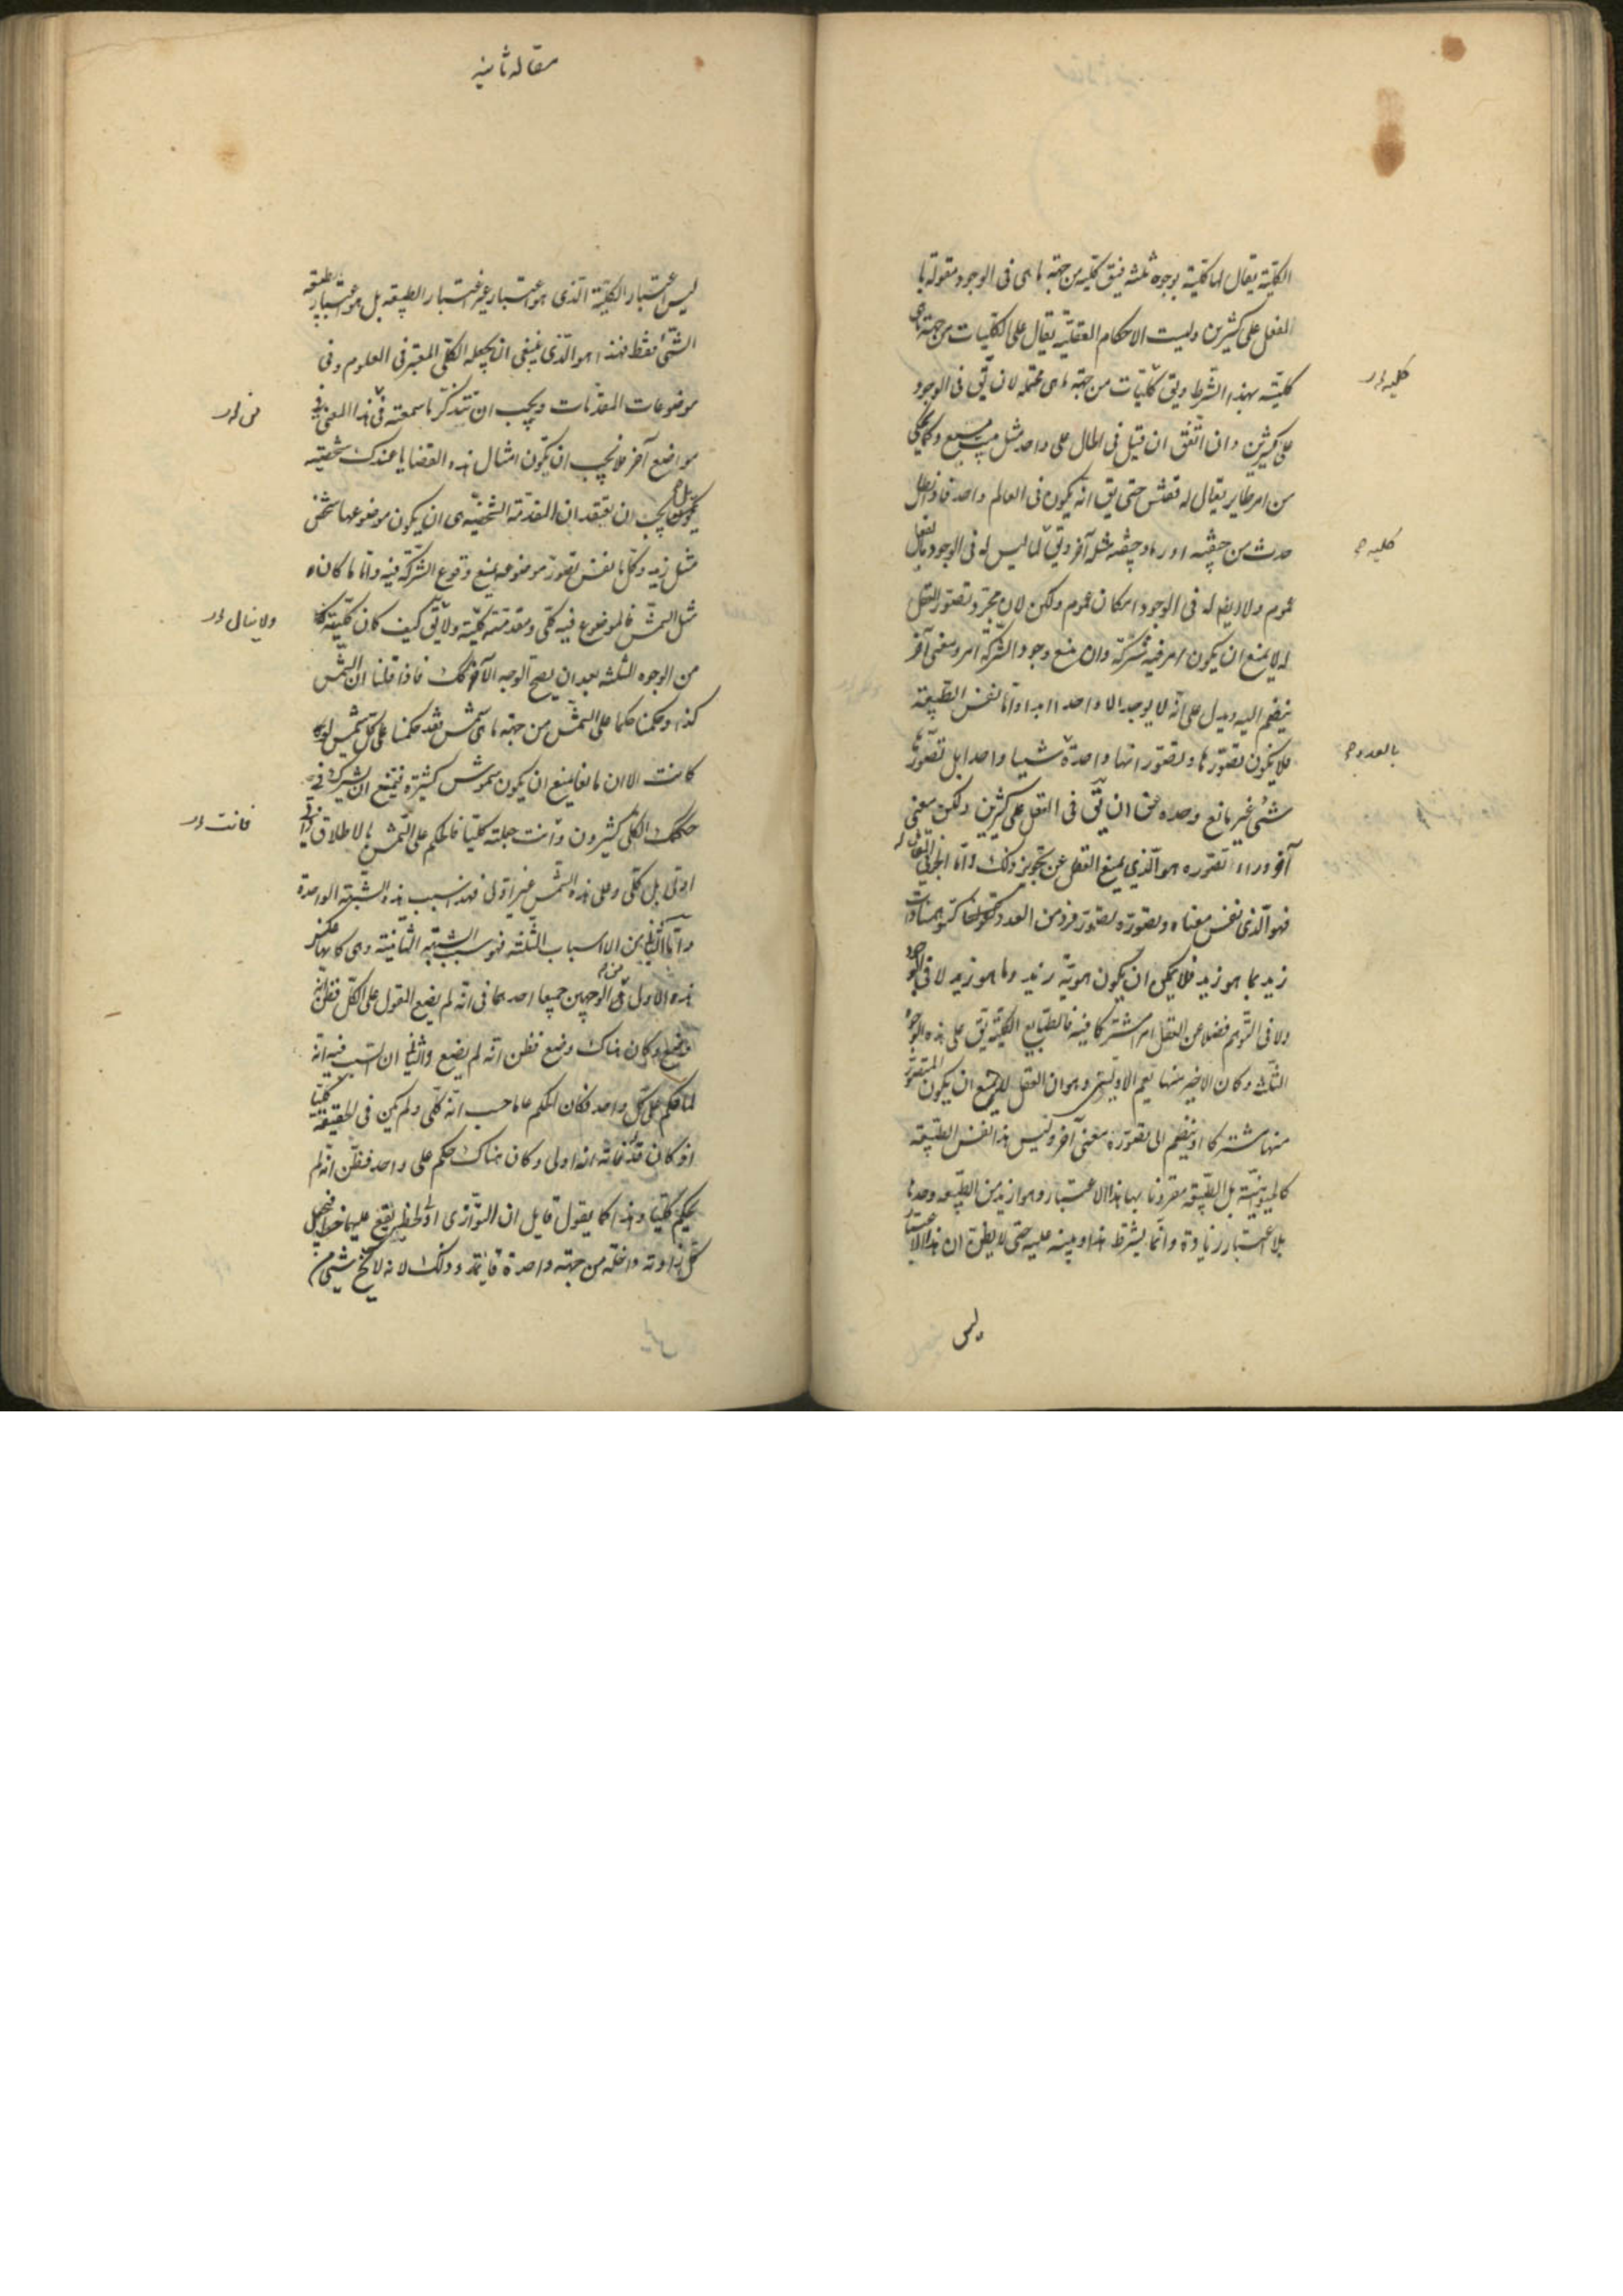 الكلية يقال لها كلية بوجوه ثلثة فيق كلية من جهة ما هى فى الوجود مقولة با
الفعل على كثيرين وليست الاحكام العقلية يقال على الكليات من جهة ماهى
كلية بهذا الشرط ويق كليات من جهة ما هى محتملة لان يق فى الوجود
على كثيرين وان اتفق ان قيل فى الحال على واحد مثل بيت مسبع وكما يحكى
من امر طاير يقال له ققنس حتى يق انه يكون فى العالم واحد فاذا بطل
حدث من جيفته او رماد جيفته مثله آخر ويق لما ليس له فى الوجود بالفعل
عموم ولا ايضا له فى الوجود امكان عموم ولكن لان مجرد تصور العقل
له لا يمنع ان يكون امر فيه شركة وان منع وجود الشركة امر ومعنى آخر
ينضم اليه ويدل على انه لا يوجد الا واحدا ابدا واما نفس الطبيعة
فلا يكون تصورها وتصور انها واحدة شيا واحدا بل تصورها
شئ غير مانع وحده عن ان يق فى العقل على كثيرين ولكن معنى
آخر وراء تصوره هو الذى يمنع العقل عن تجويز ذلك واما الجزئى المقابل له
فهو الذى نفس معناه وتصوره تصور فرد من العدد كتصورنا
زيد بما هو زيد فلا يمكن ان يكون هوية زيد وما هو زيد لا فى الوجود
ولا فى التوهم فضلا عن العقل امرا مشتركا فيه فالطبايع الكلية يق على هذه الوجوه
الثلث وكان الاخير منها يعم الاوليين وهو ان العقل لا يمنع ان يكون المتصور
منها مشتركا او ينضم الى تصوره معنى آخر وليس هذا نفس الطبيعة
كالحيوانية بل الطبيعة مقرونا بها هذا الاعتبار وهو ازيد من الطبيعة وحدها
بلا اعتبار زيادة وانما يشرط هذا وينبه عليه حتى لا يظن ان هذا الاعتبار
ليس
كليه ار
كليه
بالعدد
مقاله ثانيه
ليس اعتبار الكلية الذى هو اعتبار غير اعتبار الطبيعة بل هو اعتبار طبيعة
الشئ فقط فهذا هو الذى ينبغى ان يجعله الكلى المعتبر فى العلوم وفى
موضوعات المقدمات ويجب ان تتذكر ما سمعته فى هذا المعنى فى
مواضع آخر فلا يجب ان يكون امثال هذه القضايا عندك شخصية
بل يجب ان تعتقد ان المقدمة الشخصية هى ان يكون موضوعها شخص
مثل زيد وكل ما نفس تصور موضوعه يمنع وقوع الشركة فيه واما ما كان
مثل الشمس فالموضوع فيه كلى ومقدمته كلية ولا يق كيف كان كلية
من الوجوه الثلثة بعد ان يصح الوجه الآخر لك فاذا قلنا ان الشمس
كذا وحكمنا حكما على الشمس من جهة ما هى شمس فقد حكمنا على كل شمس لو
كانت الا ان مانعا يمنع ان يكون شموس كثيرة فيمنع ان يشترك فى
حكمك الكلى كثيرون وانت جعلته كليا فالحكم على الشمس بالاطلاق
اولى بل كلى وعلى هذه الشمس غير اولى فهذا سبب هذه الشبهة الواحدة
واما الثانى من الاسباب الثلثة فهو سبب الشبهة الثانية وهى كانها عكس
هذه الاول فى الوجهين جميعا احدهما فى انه لم يضع القول على الكل فظن انه
وضع وكان هناك وضع فظن انه لم يضع والثانى ان السبب فيه انه
لما حكم على كل واحد فكان الحكم عاما حسب انه كلى ولم يكن فى الحقيقة كليا
اذ كان قد فاته انه اولى وكان هناك حكم على واحد فظن انه لم
يحكم كليا وهذا كما يقول قايل ان المتوازى اى خطين يقع عليهما خط فيجعل
كل زاوية داخلة من جهة واحدة قايمة وذلك لانه لا شئ من
ولا يبالى ار
فانت ار